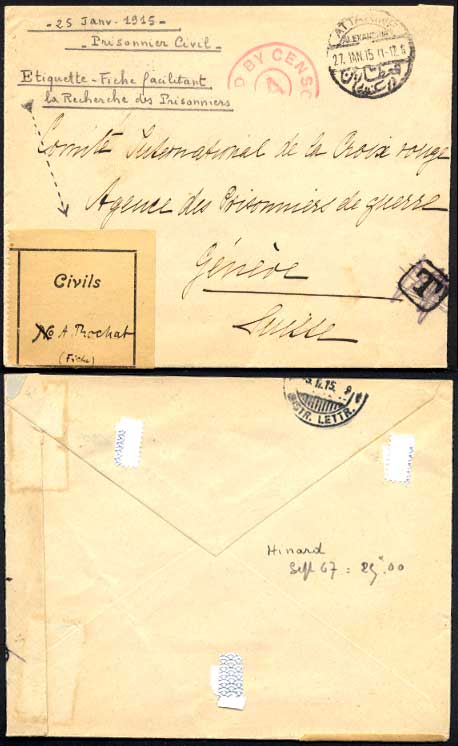 - 25 Janv - 1915 -
- Prisonnier Civil -
Etiquette - Fiche facilitant
la Recherche des Prisonniers
D BY CENSO
4
ATTARINE
ALEXANDRIA
27. JAN. 15. 11-12. S
Comité International de la Croix rouge
Agence des Prisonniers de guerre
Génève
Suisse
T
Civils
No A. Rochat
(Fiche)
15. 9
DISTR. LETTR.
Hinard
Sept 67 : 25F.00